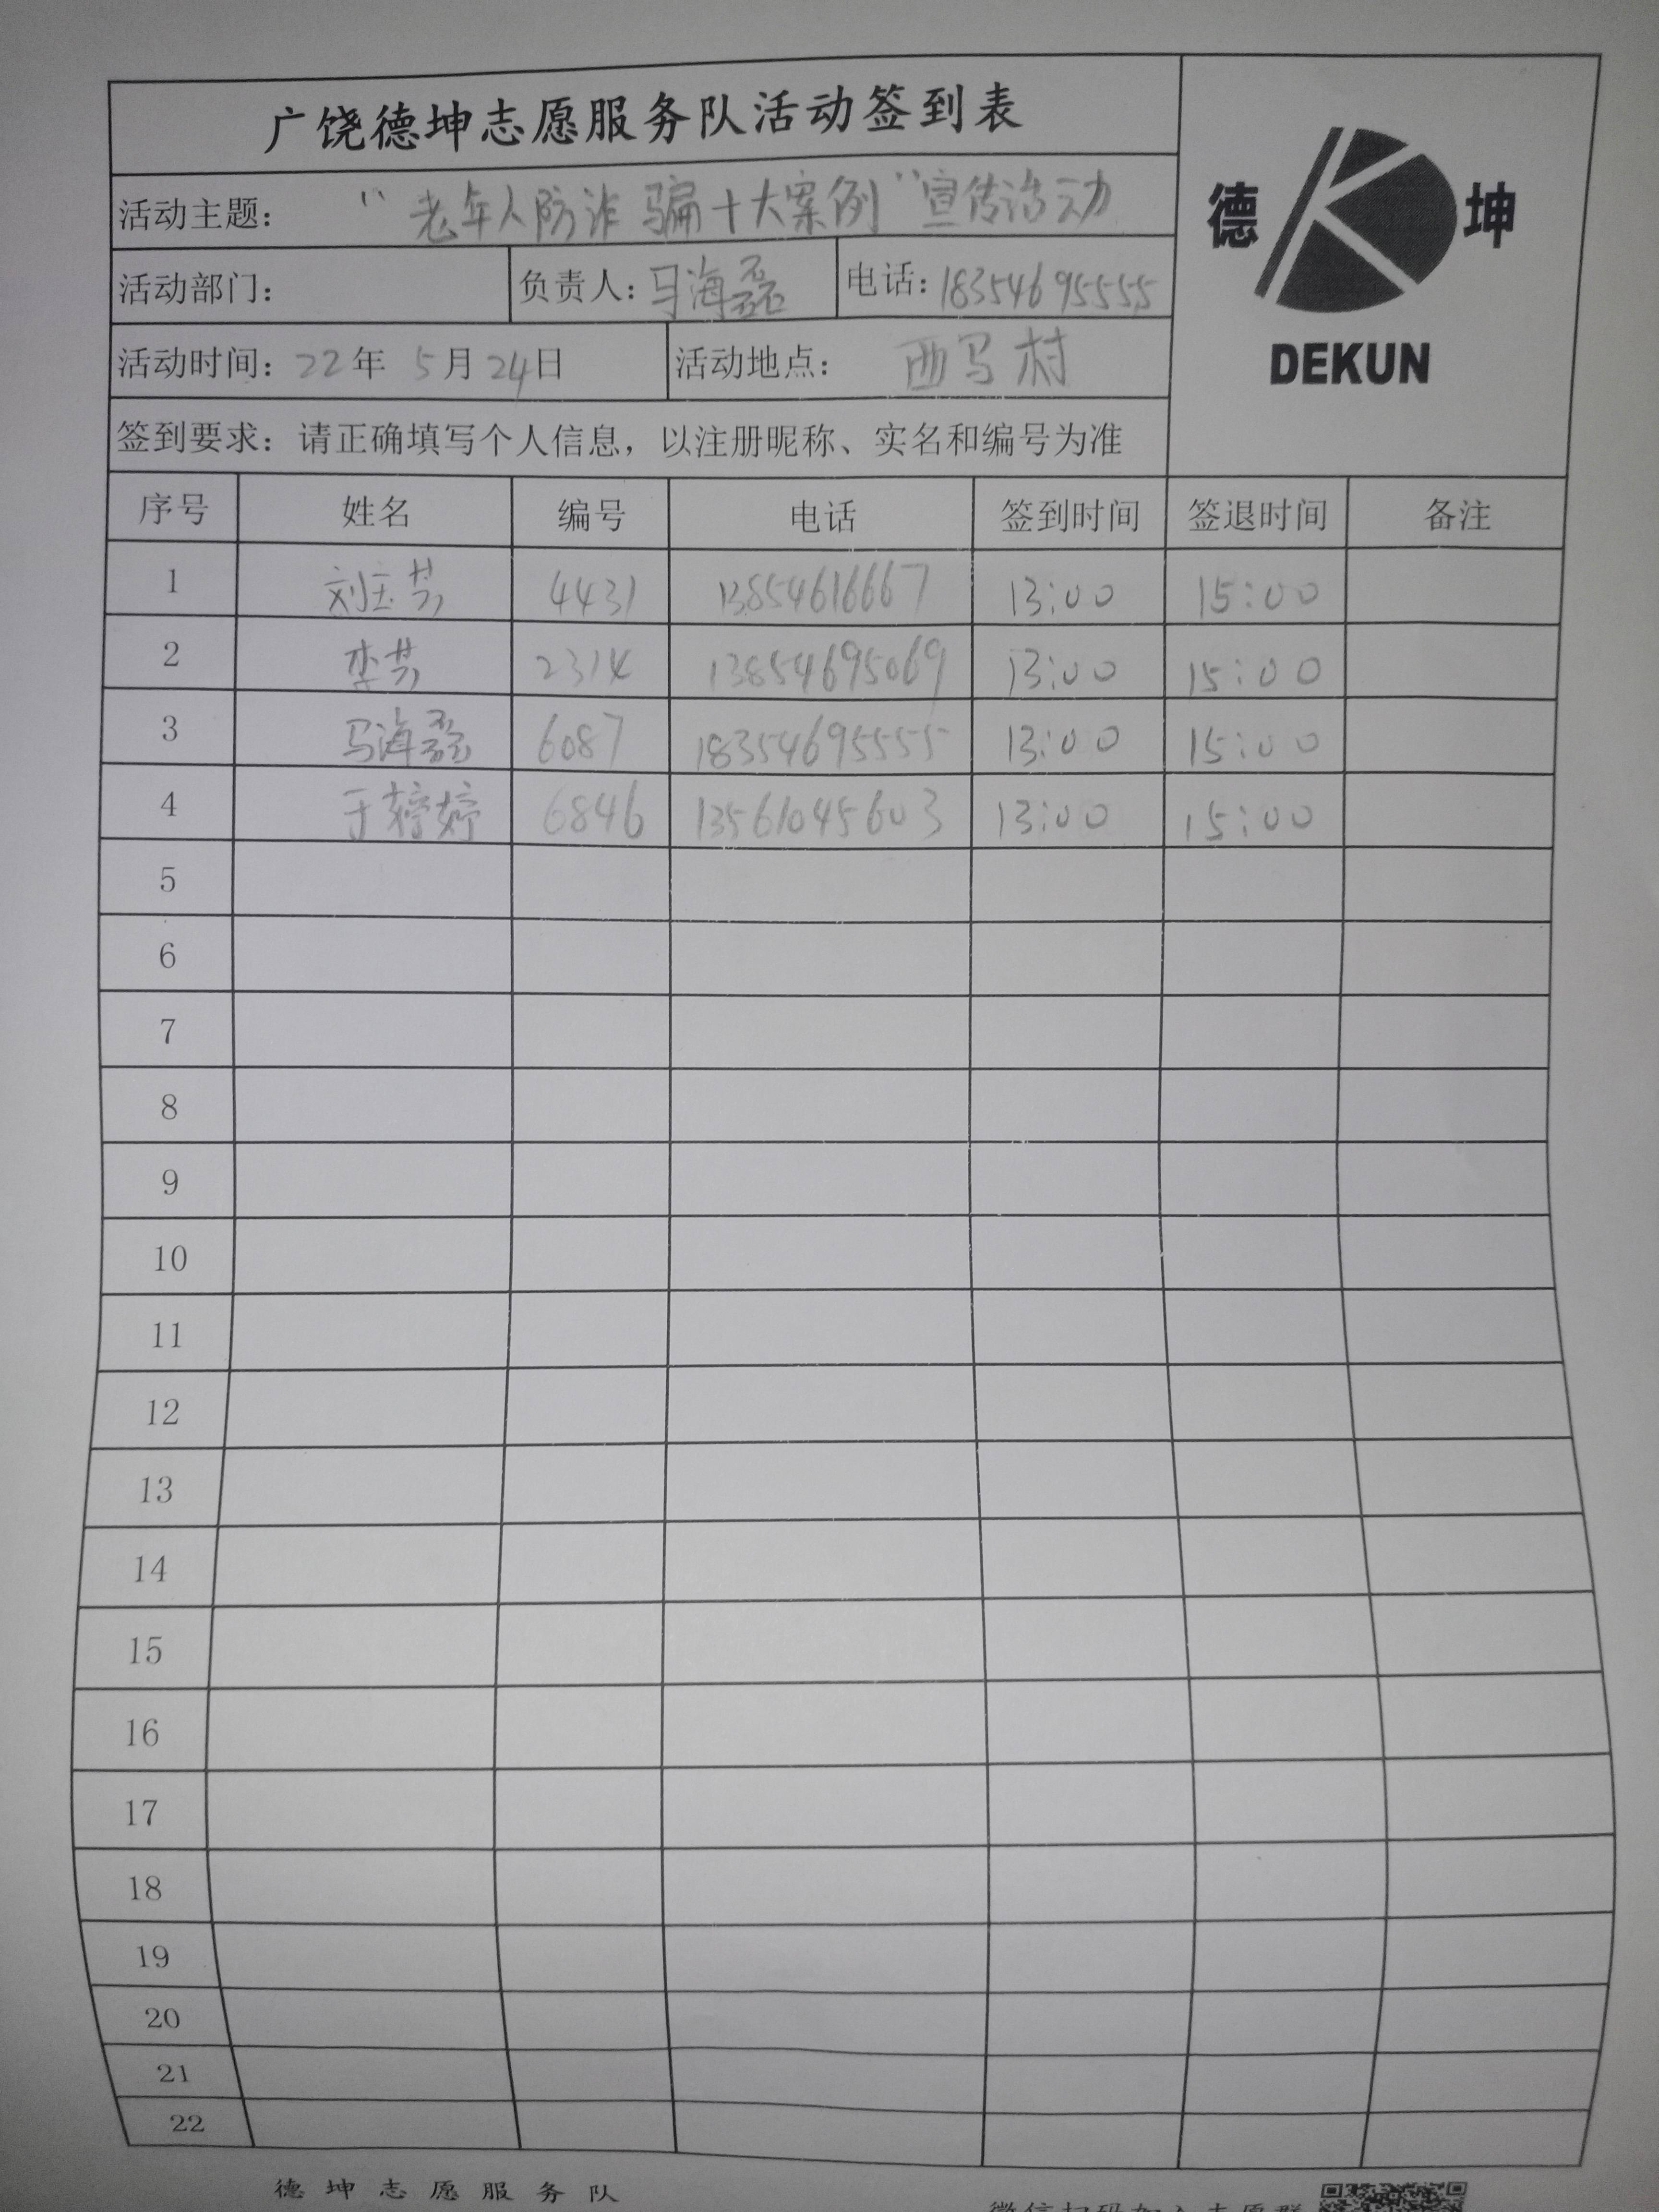 广饶德坤志愿服务队活动签到表
德 坤
DEKUN
活动主题： “老年人防诈骗十大案例”宣传活动
活动部门： 负责人：马海磊 电话：18354695555
活动时间：22年 5月24日 活动地点： 西马村
签到要求：请正确填写个人信息，以注册昵称、实名和编号为准
序号 姓名 编号 电话 签到时间 签退时间 备注
1 刘玉芳 4431 13854616667 13:00 15:00
2 李芳 2314 13854695069 13:00 15:00
3 马海磊 6087 18354695555 13:00 15:00
4 于婷婷 6846 13561045603 13:00 15:00
5
6
7
8
9
10
11
12
13
14
15
16
17
18
19
20
21
22
德坤志愿服务队
微信扫码加入志愿群